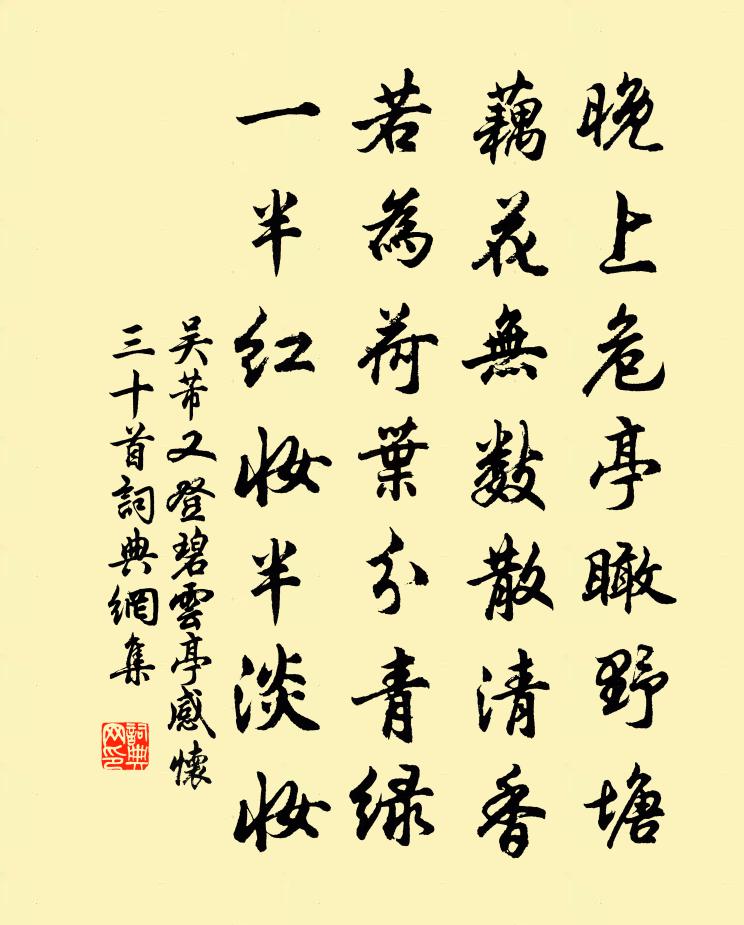 晚上危亭瞰野塘
藕花無數散清香
若為荷葉分青綠
一半紅妝半淡妝
吴芾又登碧雲亭感懷
三十首詞典網集
詞典网印